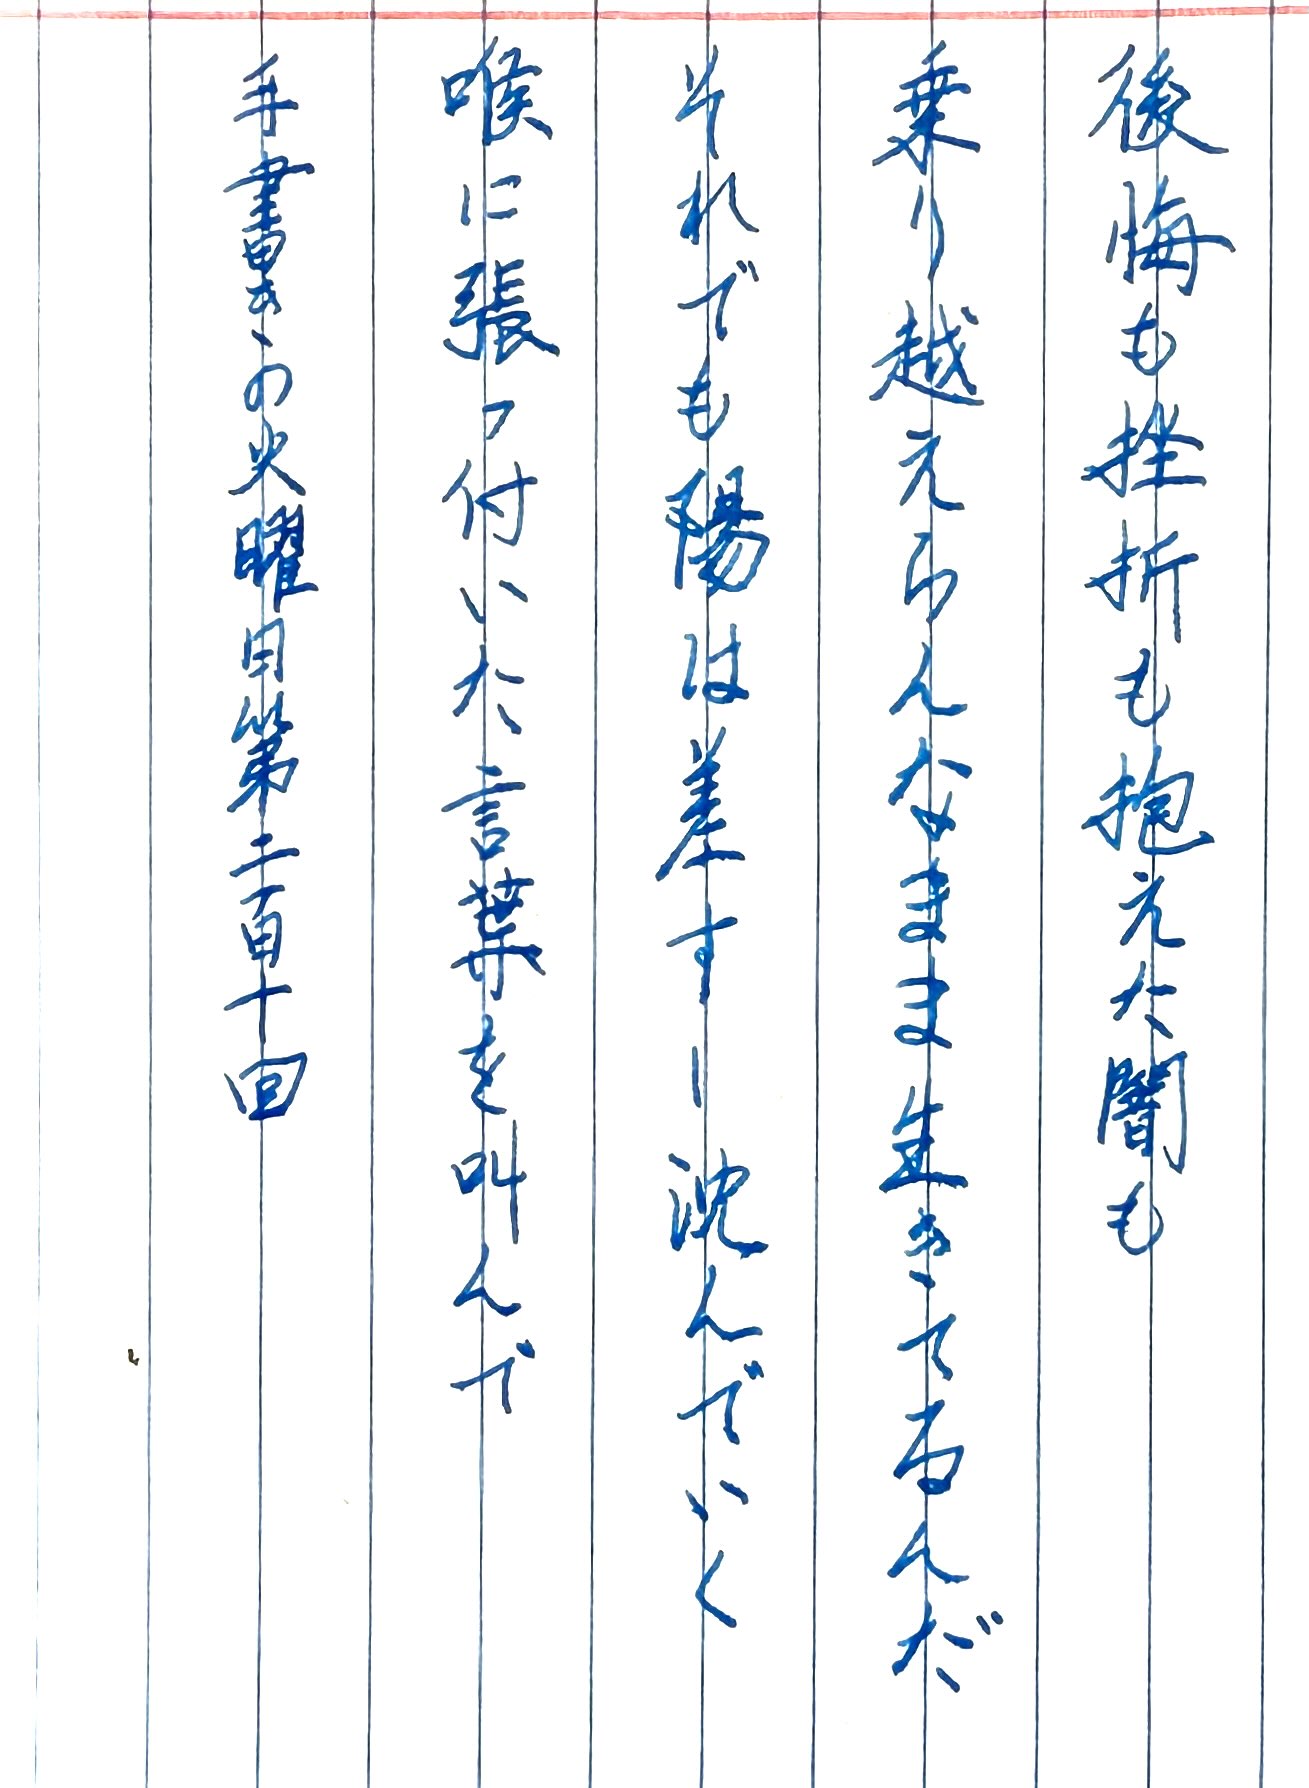 後悔も挫折も抱えた闇も
乗り越えらんなまま生きてるんだ
それでも陽は差すー沈んでいく
喉に張っ付いた言葉を叫んで
手書きの火曜日第二百十回